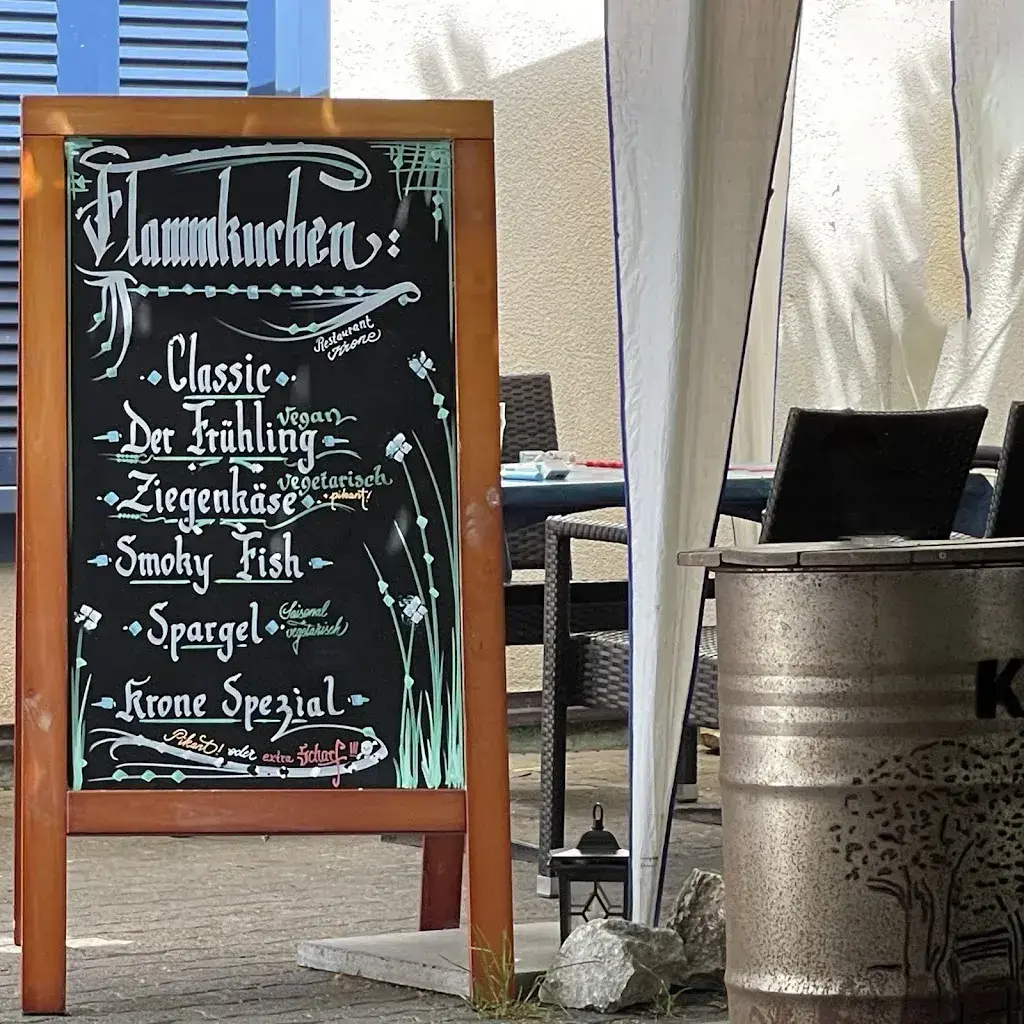 Flammkuchen:
Restaurant
Krone
Classic
Der Frühling vegan
Ziegenkäse vegetarisch
pikant!
Smoky Fish
Spargel Saisonal
vegetarisch
Krone Spezial
Pikant! oder extra Scharf!!!
K